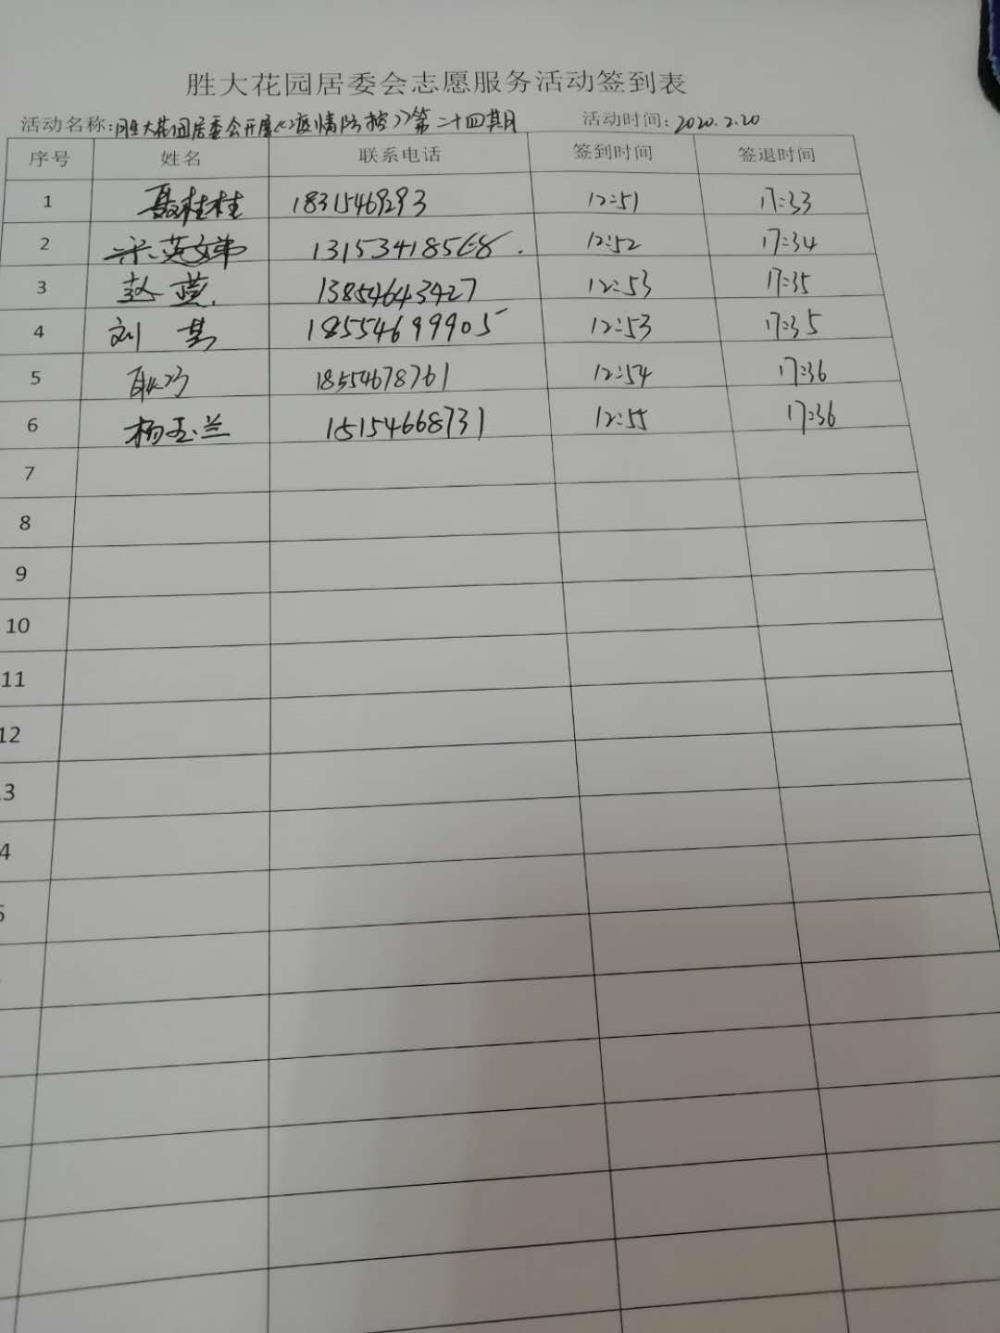 胜大花园居委会志愿服务活动签到表
活动名称:胜大花园居委会开展《疫情防控》第二十四期 活动时间:2020.2.20
序号 姓名 联系电话 签到时间 签退时间
1 聂桂桂 18315469293 12:51 17:33
2 13153418568 12:52 17:34
3 赵 13854643427 12:53 17:35
4 刘 18554699905 12:53 17:35
5 耿 18554678761 12:54 17:36
6 杨玉兰 15154668731 12:55 17:36
7
8
9
10
11
12
3
4
5